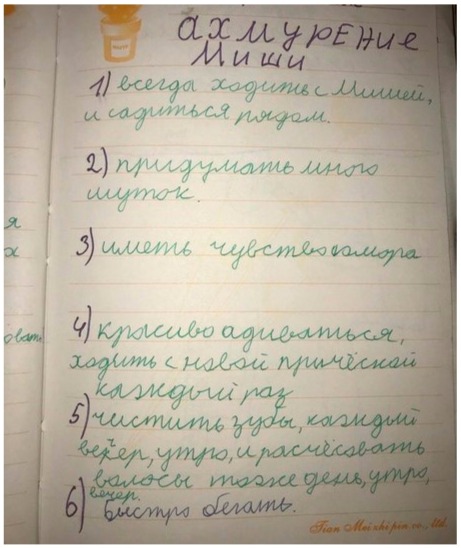 АХМУРЕНИЕ
МИШИ
1) всегда ходить с Мишей,
и садиться рядом.
2) придумать много
шуток.
я
х
3) иметь чувство юмора
4) красиво адиваться,
овать
ходить с новой причёской
каждый раз
5) чистить зубы, каждый
вечер, утро, и расчёсовать
волосы тоже день, утро,
вечер.
6) быстро бегать.
Tian Mei zhi pin co., ltd.